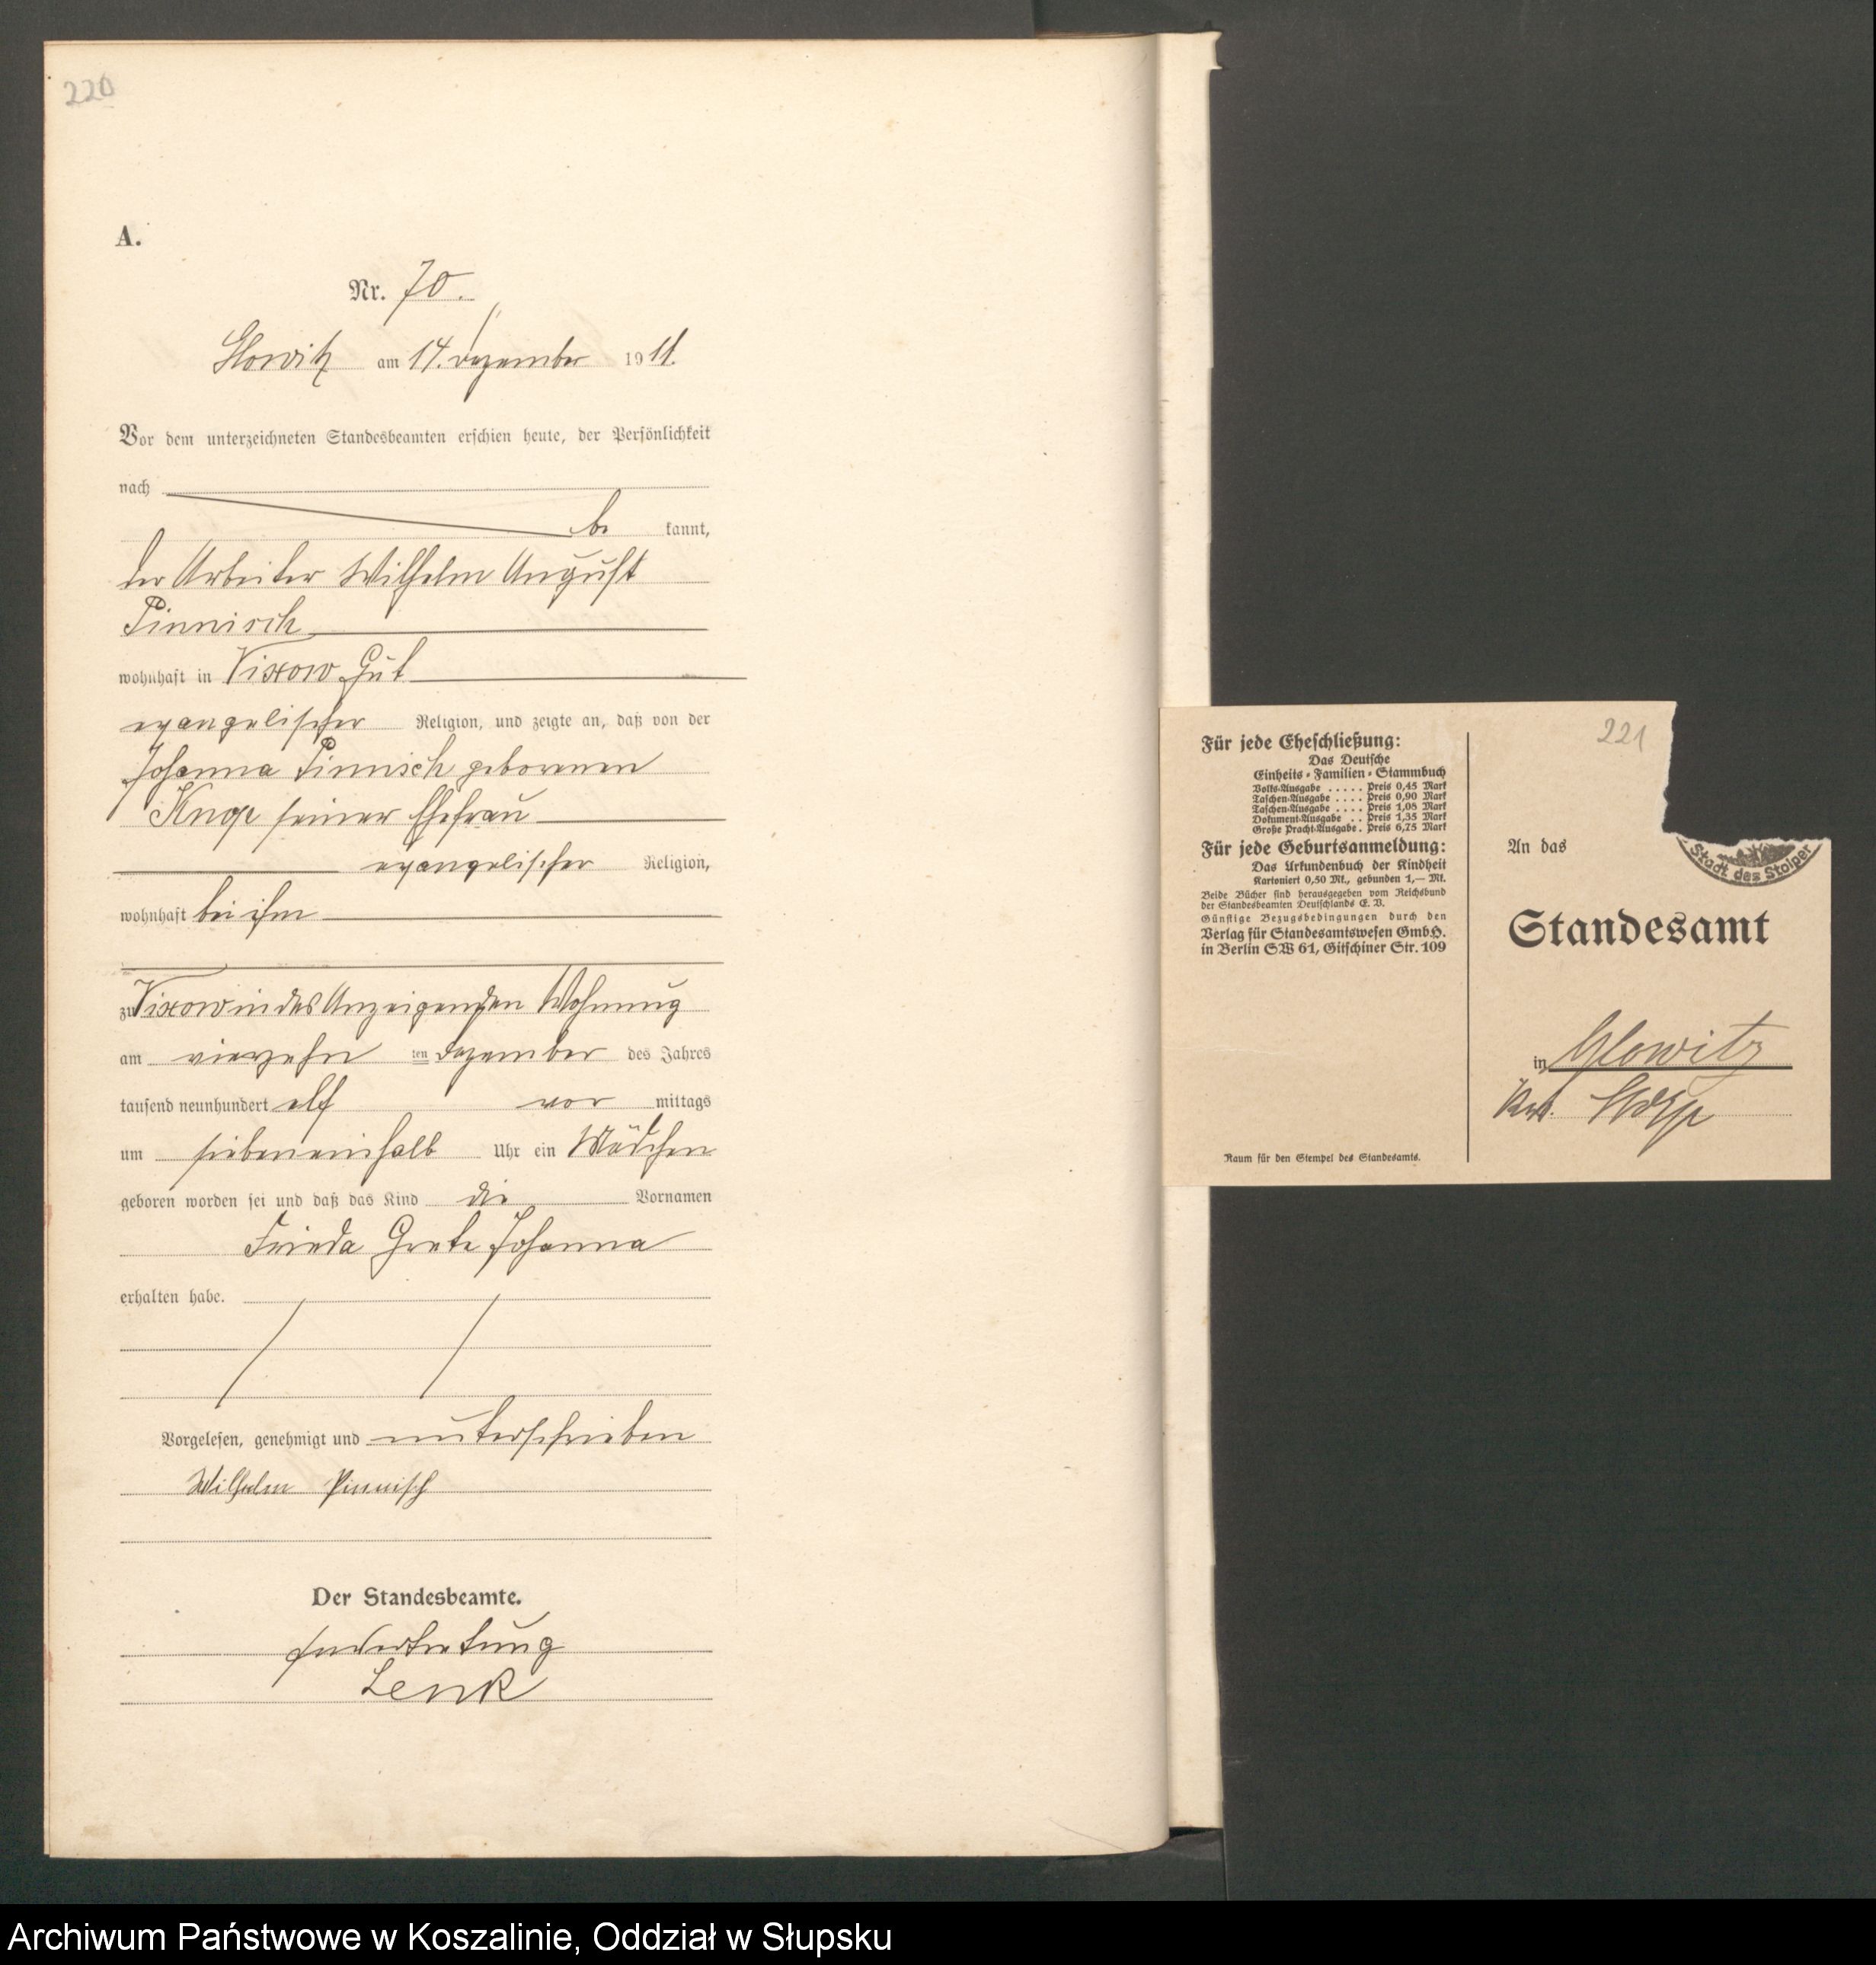 220
A.
Nr. 70.
Glowitz am 14. Dezember 1911.
Vor dem unterzeichneten Standesbeamten erschien heute, der Persönlichkeit
nach
be kannt,
der Arbeiter Wilhelm August
Pinnisch
wohnhaft in Vixow Gut
evangelischer Religion, und zeigte an, daß von der
Johanna Pinnisch geborenen
Knop seiner Ehefrau
evangelischer Religion,
wohnhaft bei ihm
zu Vixow in des Anzeigenden Wohnung
am vierzehn ten Dezember des Jahres
tausend neunhundert elf vor mittags
um siebeneinhalb Uhr ein Mädchen
geboren worden sei und daß das Kind die Vornamen
Frieda Grete Johanna
erhalten habe.
Vorgelesen, genehmigt und unterschrieben
Wilhelm Pinnisch
Der Standesbeamte.
In Vertretung
Lenk
Für jede Eheschließung:
Das Deutsche
Einheits-Familien-Stammbuch
Volks-Ausgabe . . . . . Preis 0,45 Mark
Taschen-Ausgabe . . . . Preis 0,90 Mark
Taschen-Ausgabe . . . . Preis 1,08 Mark
Dokument-Ausgabe . . Preis 1,35 Mark
Große Pracht-Ausgabe . Preis 6,75 Mark
Für jede Geburtsanmeldung:
Das Urkundenbuch der Kindheit
Kartoniert 0,50 Mk., gebunden 1,— Mk.
Beide Bücher sind herausgegeben vom Reichsbund
der Standesbeamten Deutschlands E. V.
Günstige Bezugsbedingungen durch den
Verlag für Standesamtswesen GmbH.
in Berlin SW 61, Gitschiner Str. 109
Raum für den Stempel des Standesamts.
221
Stadt des Stolper
An das
Standesamt
in Glowitz
Krs. Stolp
Archiwum Państwowe w Koszalinie, Oddział w Słupsku